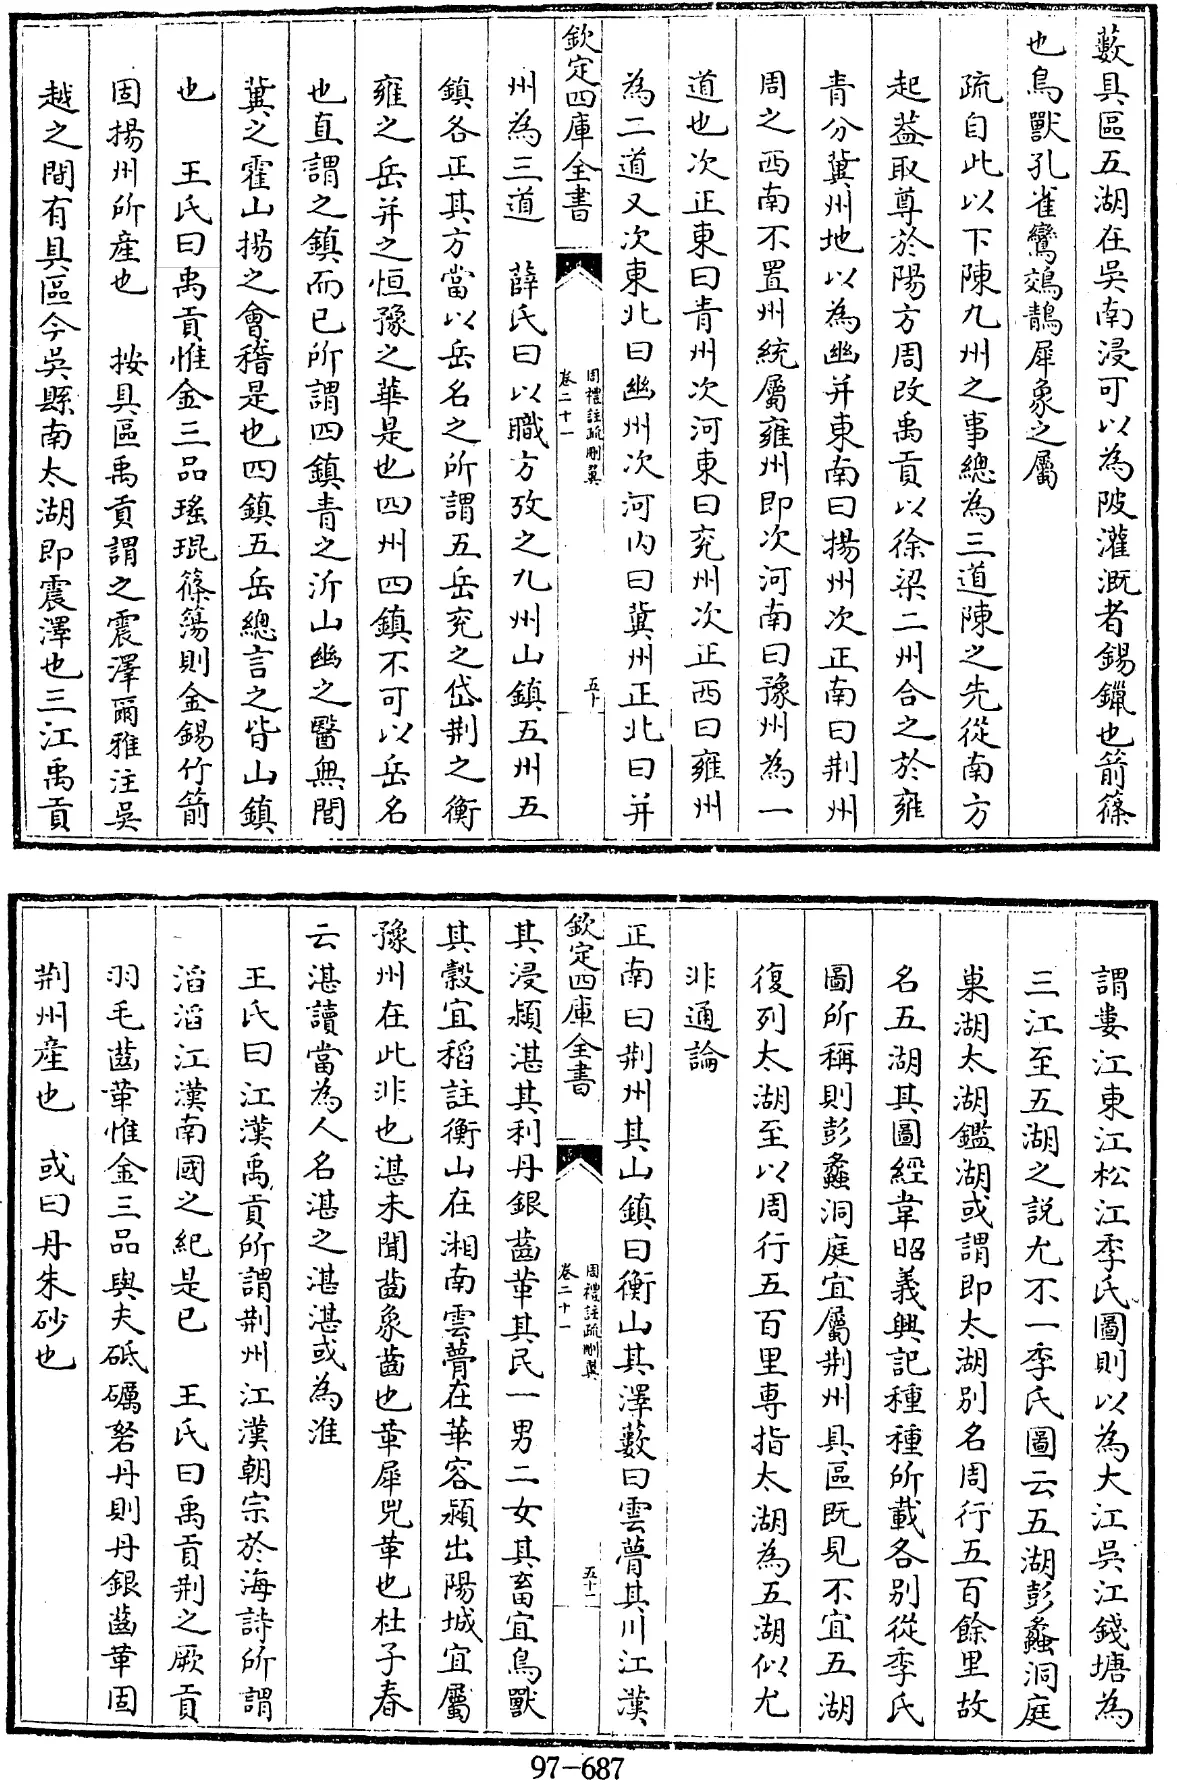 藪具區五湖在吳南浸可以為陂灌溉者錫鑞也箭篠
也鳥獸孔雀鸞鵁鶄犀象之屬
疏自此以下陳九州之事總為三道陳之先從南方
起葢取尊於陽方周改禹貢以徐梁二州合之於雍
青分冀州地以為幽并東南曰揚州次正南曰荆州
周之西南不置州統屬雍州即次河南曰豫州為一
道也次正東曰青州次河東曰兖州次正西曰雍州
為二道又次東北曰幽州次河内曰冀州正北曰并
欽定四庫全書
周禮註疏刪翼
卷二十一
五十
州為三道　薛氏曰以職方攷之九州山鎮五州五
鎮各正其方當以岳名之所謂五岳兖之岱荆之衡
雍之岳并之恒豫之華是也四州四鎮不可以岳名
也直謂之鎮而已所謂四鎮青之沂山幽之醫無閭
冀之霍山揚之會稽是也四鎮五岳總言之皆山鎮
也　王氏曰禹貢惟金三品瑤琨篠簜則金錫竹箭
固揚州所産也　按具區禹貢謂之震澤爾雅注吳
越之間有具區今吳縣南太湖即震澤也三江禹貢
謂婁江東江松江季氏圖則以為大江吳江錢塘為
三江至五湖之說尤不一李氏圖云五湖彭蠡洞庭
巢湖太湖鑑湖或謂即太湖别名周行五百餘里故
名五湖其圖經韋昭義興記種種所載各别從李氏
圖所稱則彭蠡洞庭宜屬荆州具區既見不宜五湖
復列太湖至以周行五百里専指太湖為五湖似尤
非通論
正南曰荆州其山鎮曰衡山其澤藪曰雲瞢其川江漢
欽定四庫全書
周禮註疏刪翼
卷二十一
五十一
其浸潁湛其利丹銀齒革其民一男二女其畜宜鳥獸
其穀宜稻註衡山在湘南雲瞢在華容潁出陽城宜屬
豫州在此非也湛未聞齒象齒也革犀兕革也杜子春
云湛讀當為人名湛之湛湛或為淮
王氏曰江漢禹貢所謂荆州江漢朝宗於海詩所謂
滔滔江漢南國之紀是已　王氏曰禹貢荆之厥貢
羽毛齒革惟金三品與夫砥礪砮丹則丹銀齒革固
荆州産也　或曰丹朱砂也
97-687